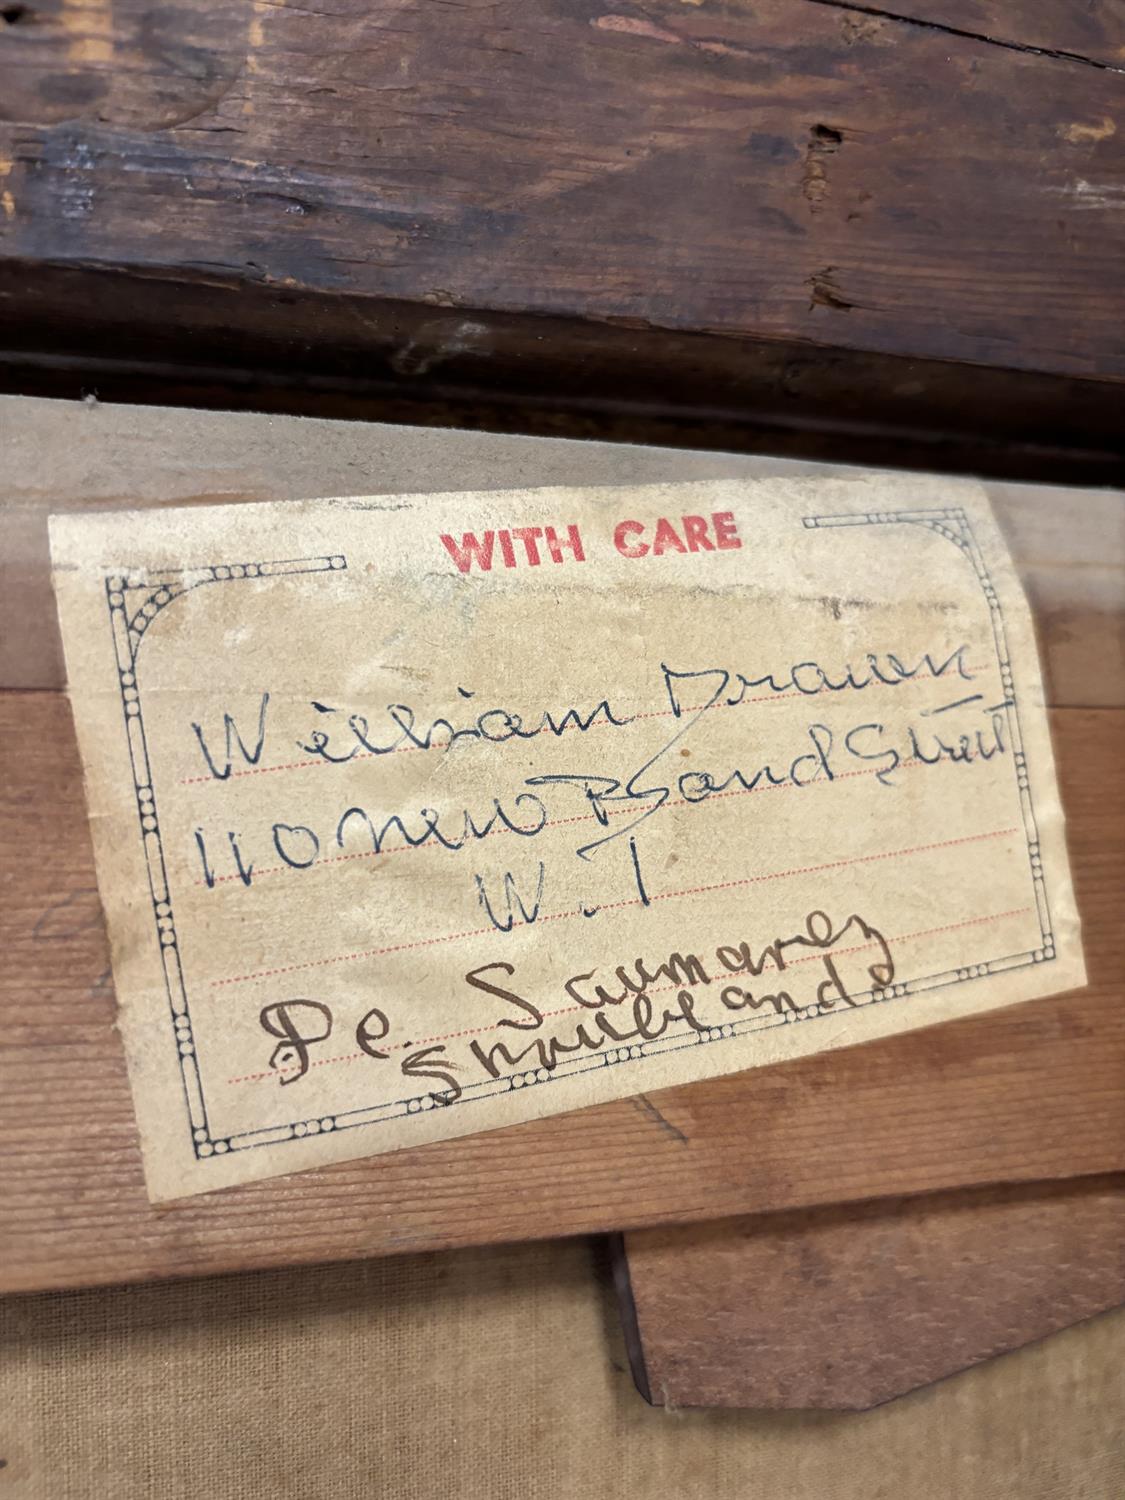 WITH CARE
William Drawn
110 New Bond Street
W.1
De. Saumarez
Shrublands